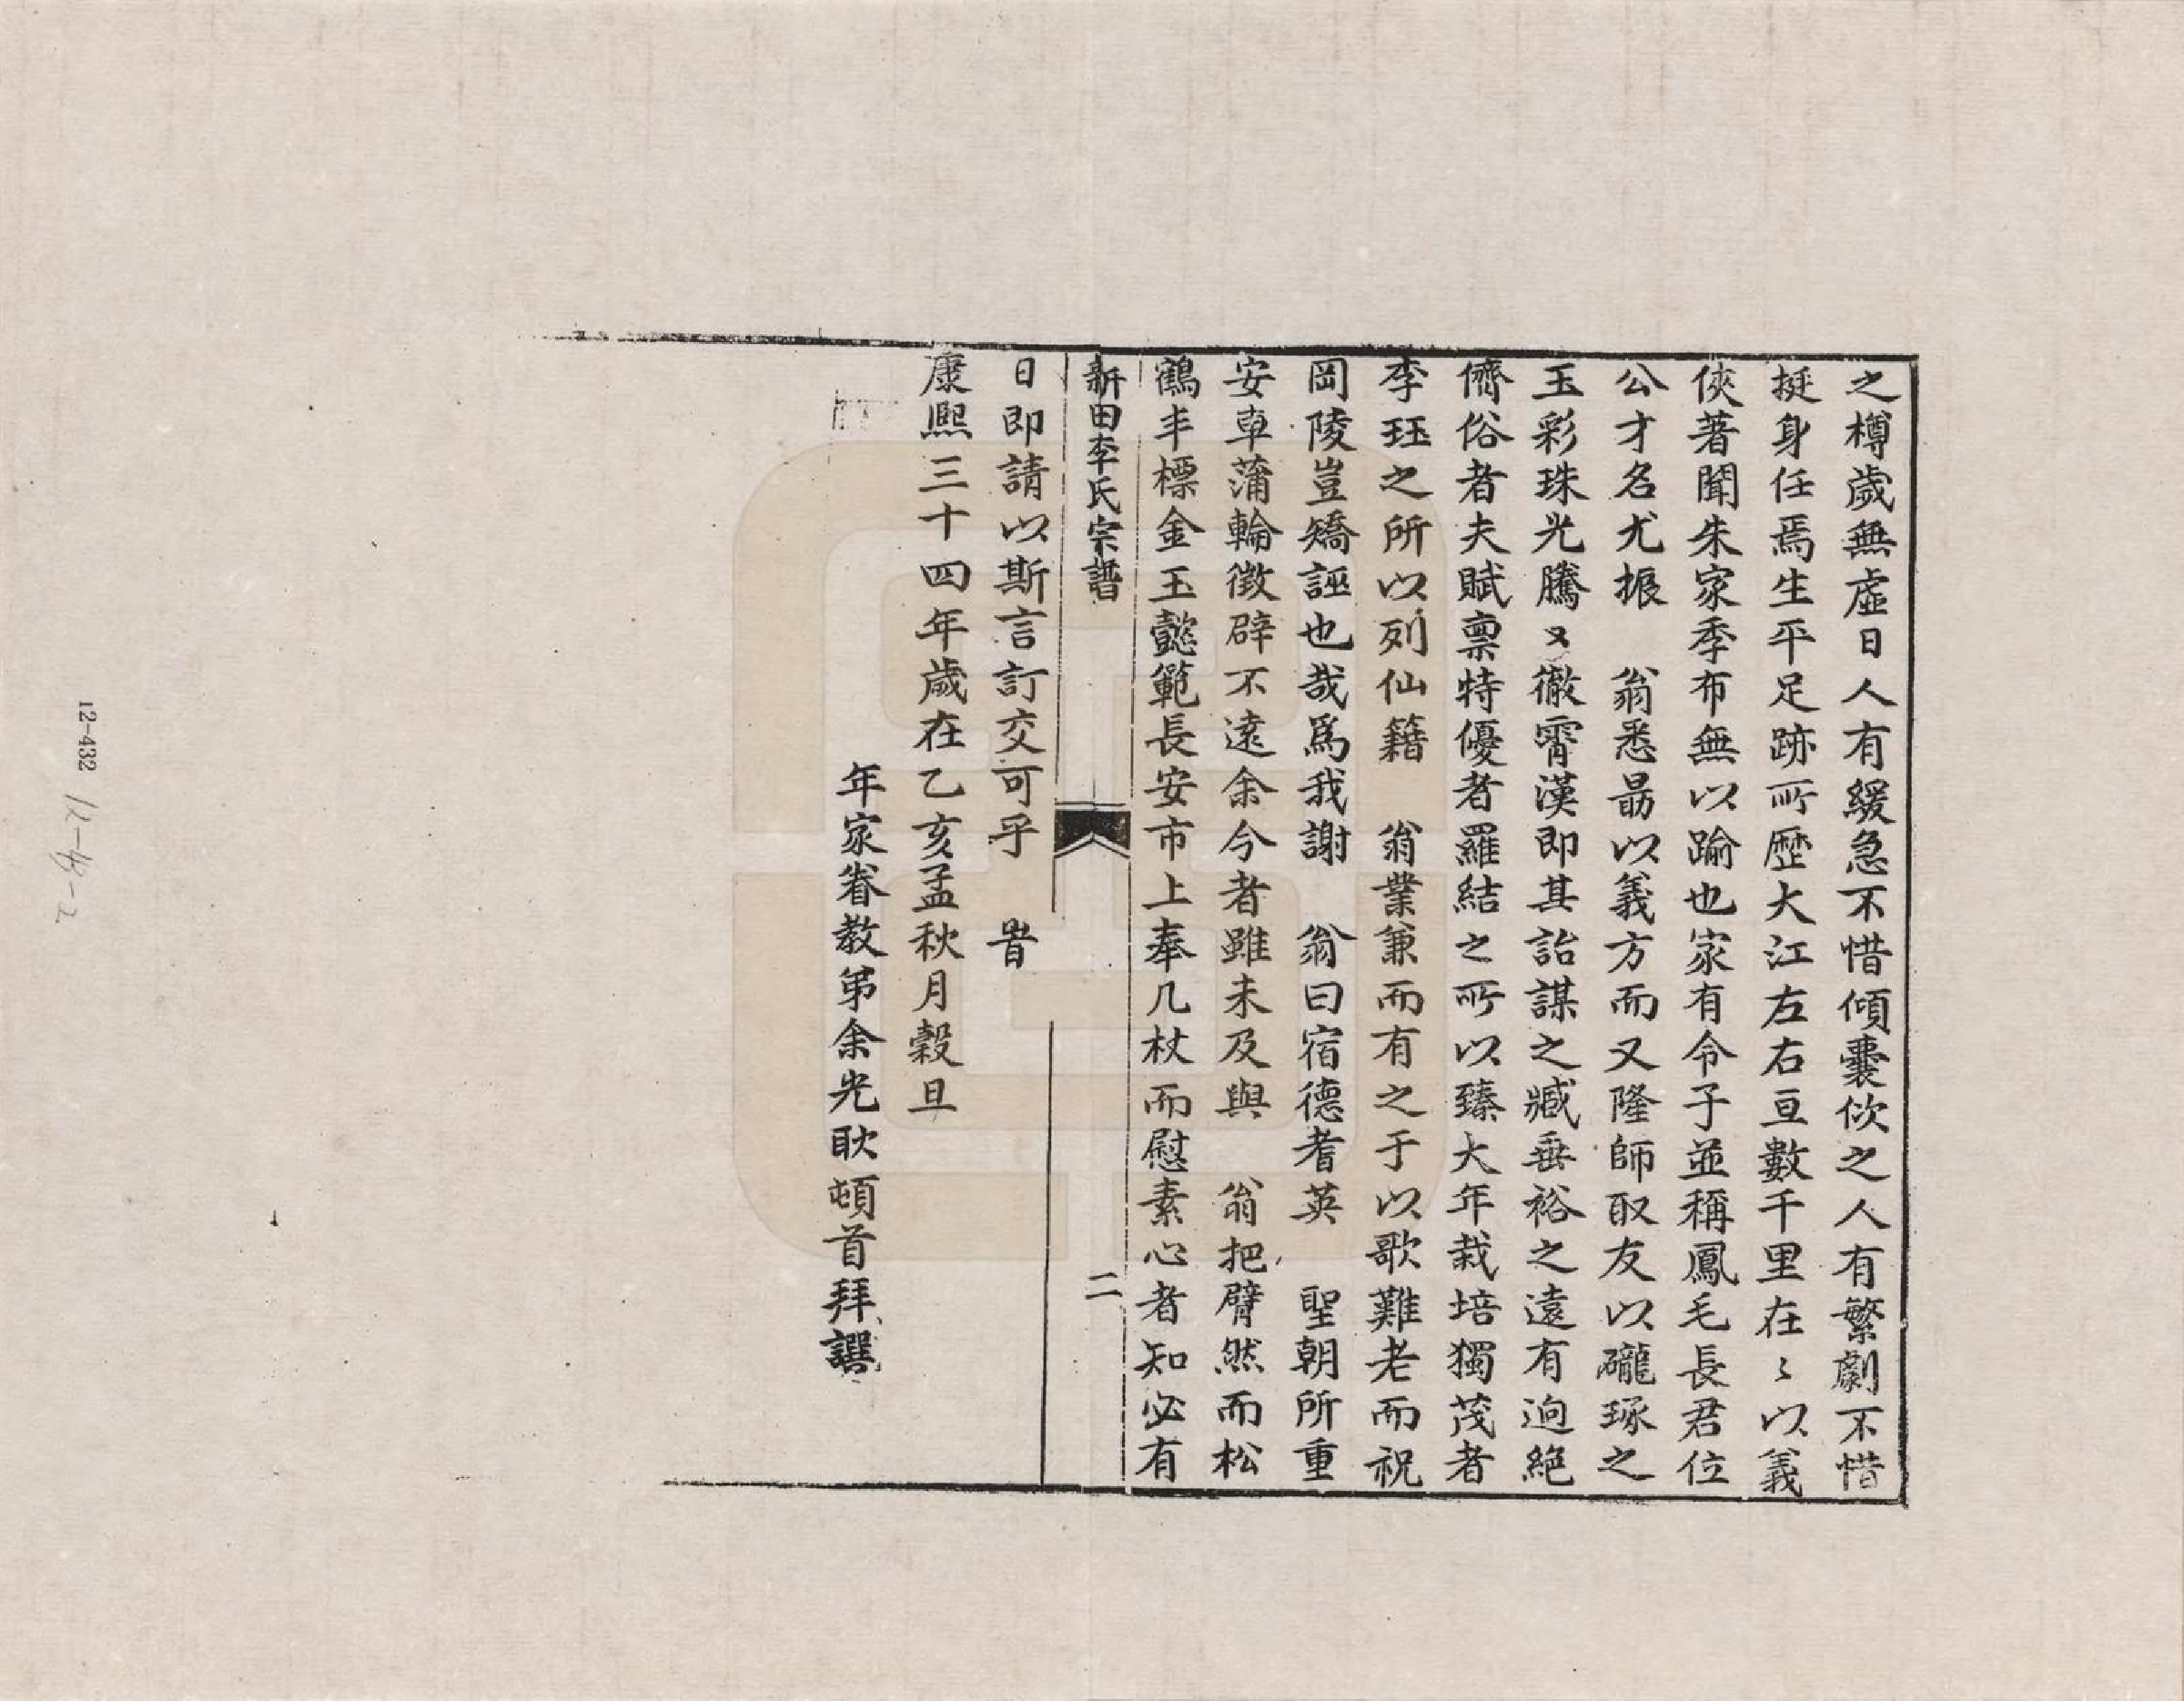 之樽歲無虛日人有緩急不惜傾囊佽之人有繁劇不惜
挺身任焉生平足跡所歷大江左右亘數千里在〻以義
俠著聞朱家季布無以踰也家有令子並稱鳳毛長君位
公才名尤振　翁悉勗以義方而又隆師取友以礲琢之
玉彩珠光騰〻徹霄漢即其詒謀之臧垂裕之遠有逈絕
儕俗者夫賦禀特優者羅結之所以臻大年栽培獨茂者
李珏之所以列仙籍　翁業兼而有之于以歌難老而祝
岡陵豈矯誣也哉爲我謝　翁曰宿德耆英　聖朝所重
安車蒲輪徵辟不遠余今者雖未及與　翁把臂然而松
鶴丰標金玉懿範長安市上奉几杖而慰素心者知必有
新田李氏宗譜
二
日即請以斯言訂交可乎　旹
康熙三十四年歲在乙亥孟秋月穀旦
年家眷教弟余光耿頓首拜譔
12-432
12-44-2